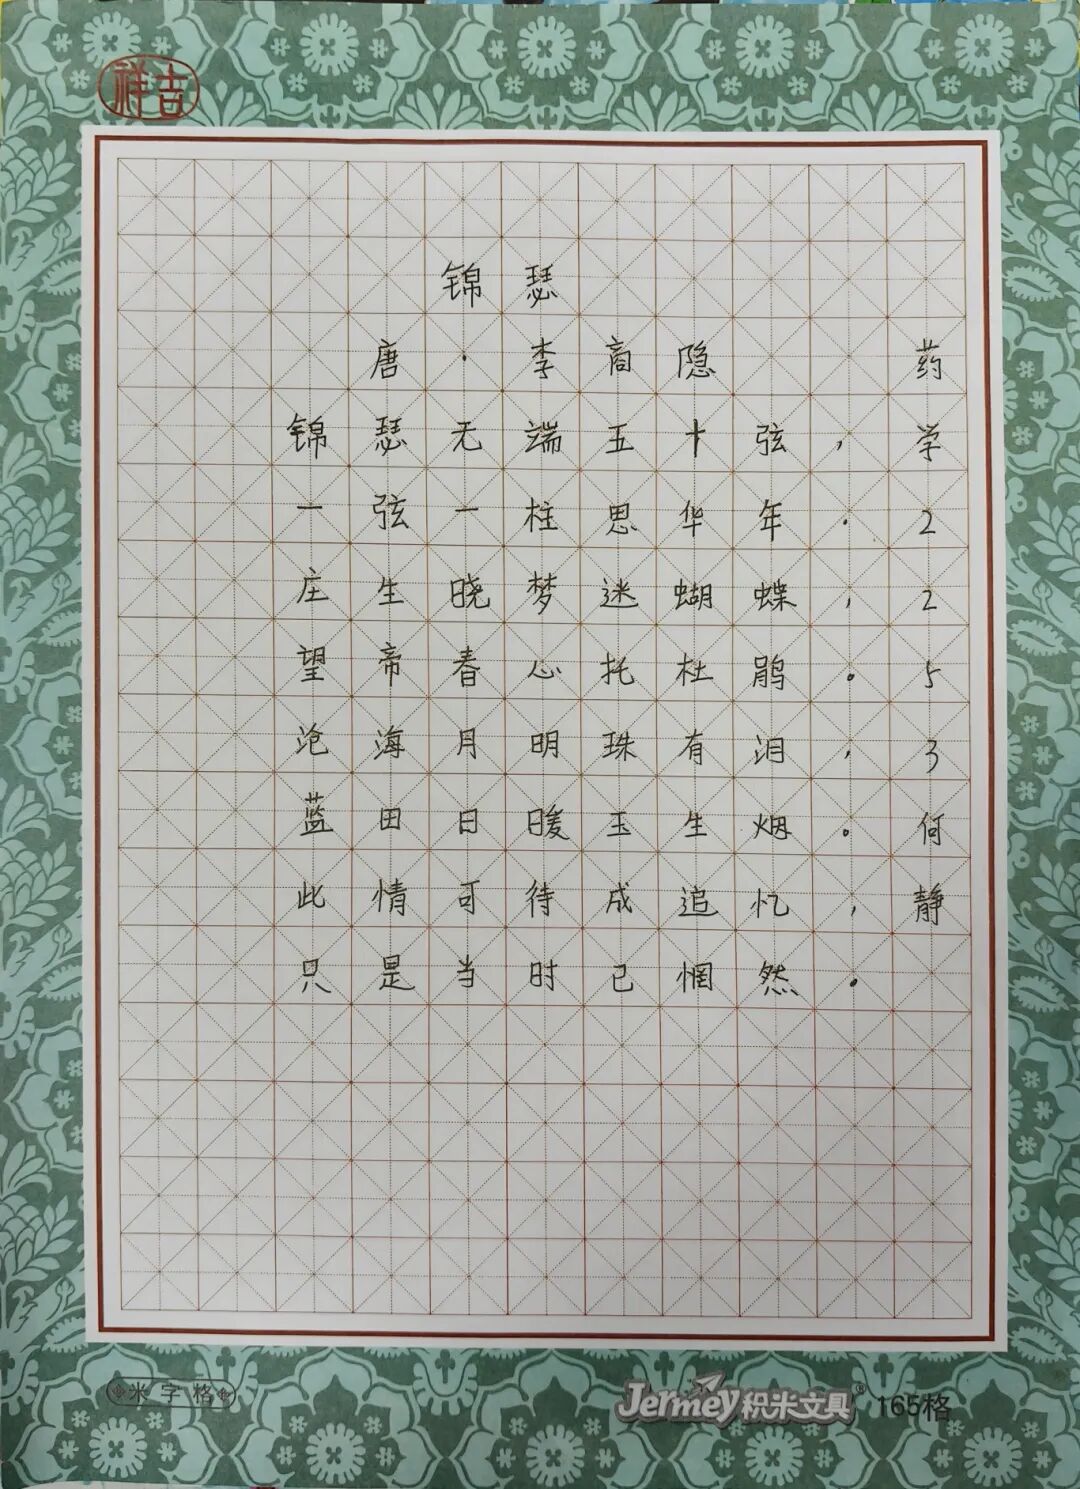 祥吉
锦瑟
唐·李商隐
锦瑟无端五十弦,
一弦一柱思华年.
庄生晓梦迷蝴蝶,
望帝春心托杜鹃。
沧海月明珠有泪,
蓝田日暖玉生烟。
此情可待成追忆,
只是当时已惘然。
药学2253何静
米字格
Jermey积米文具® 165格